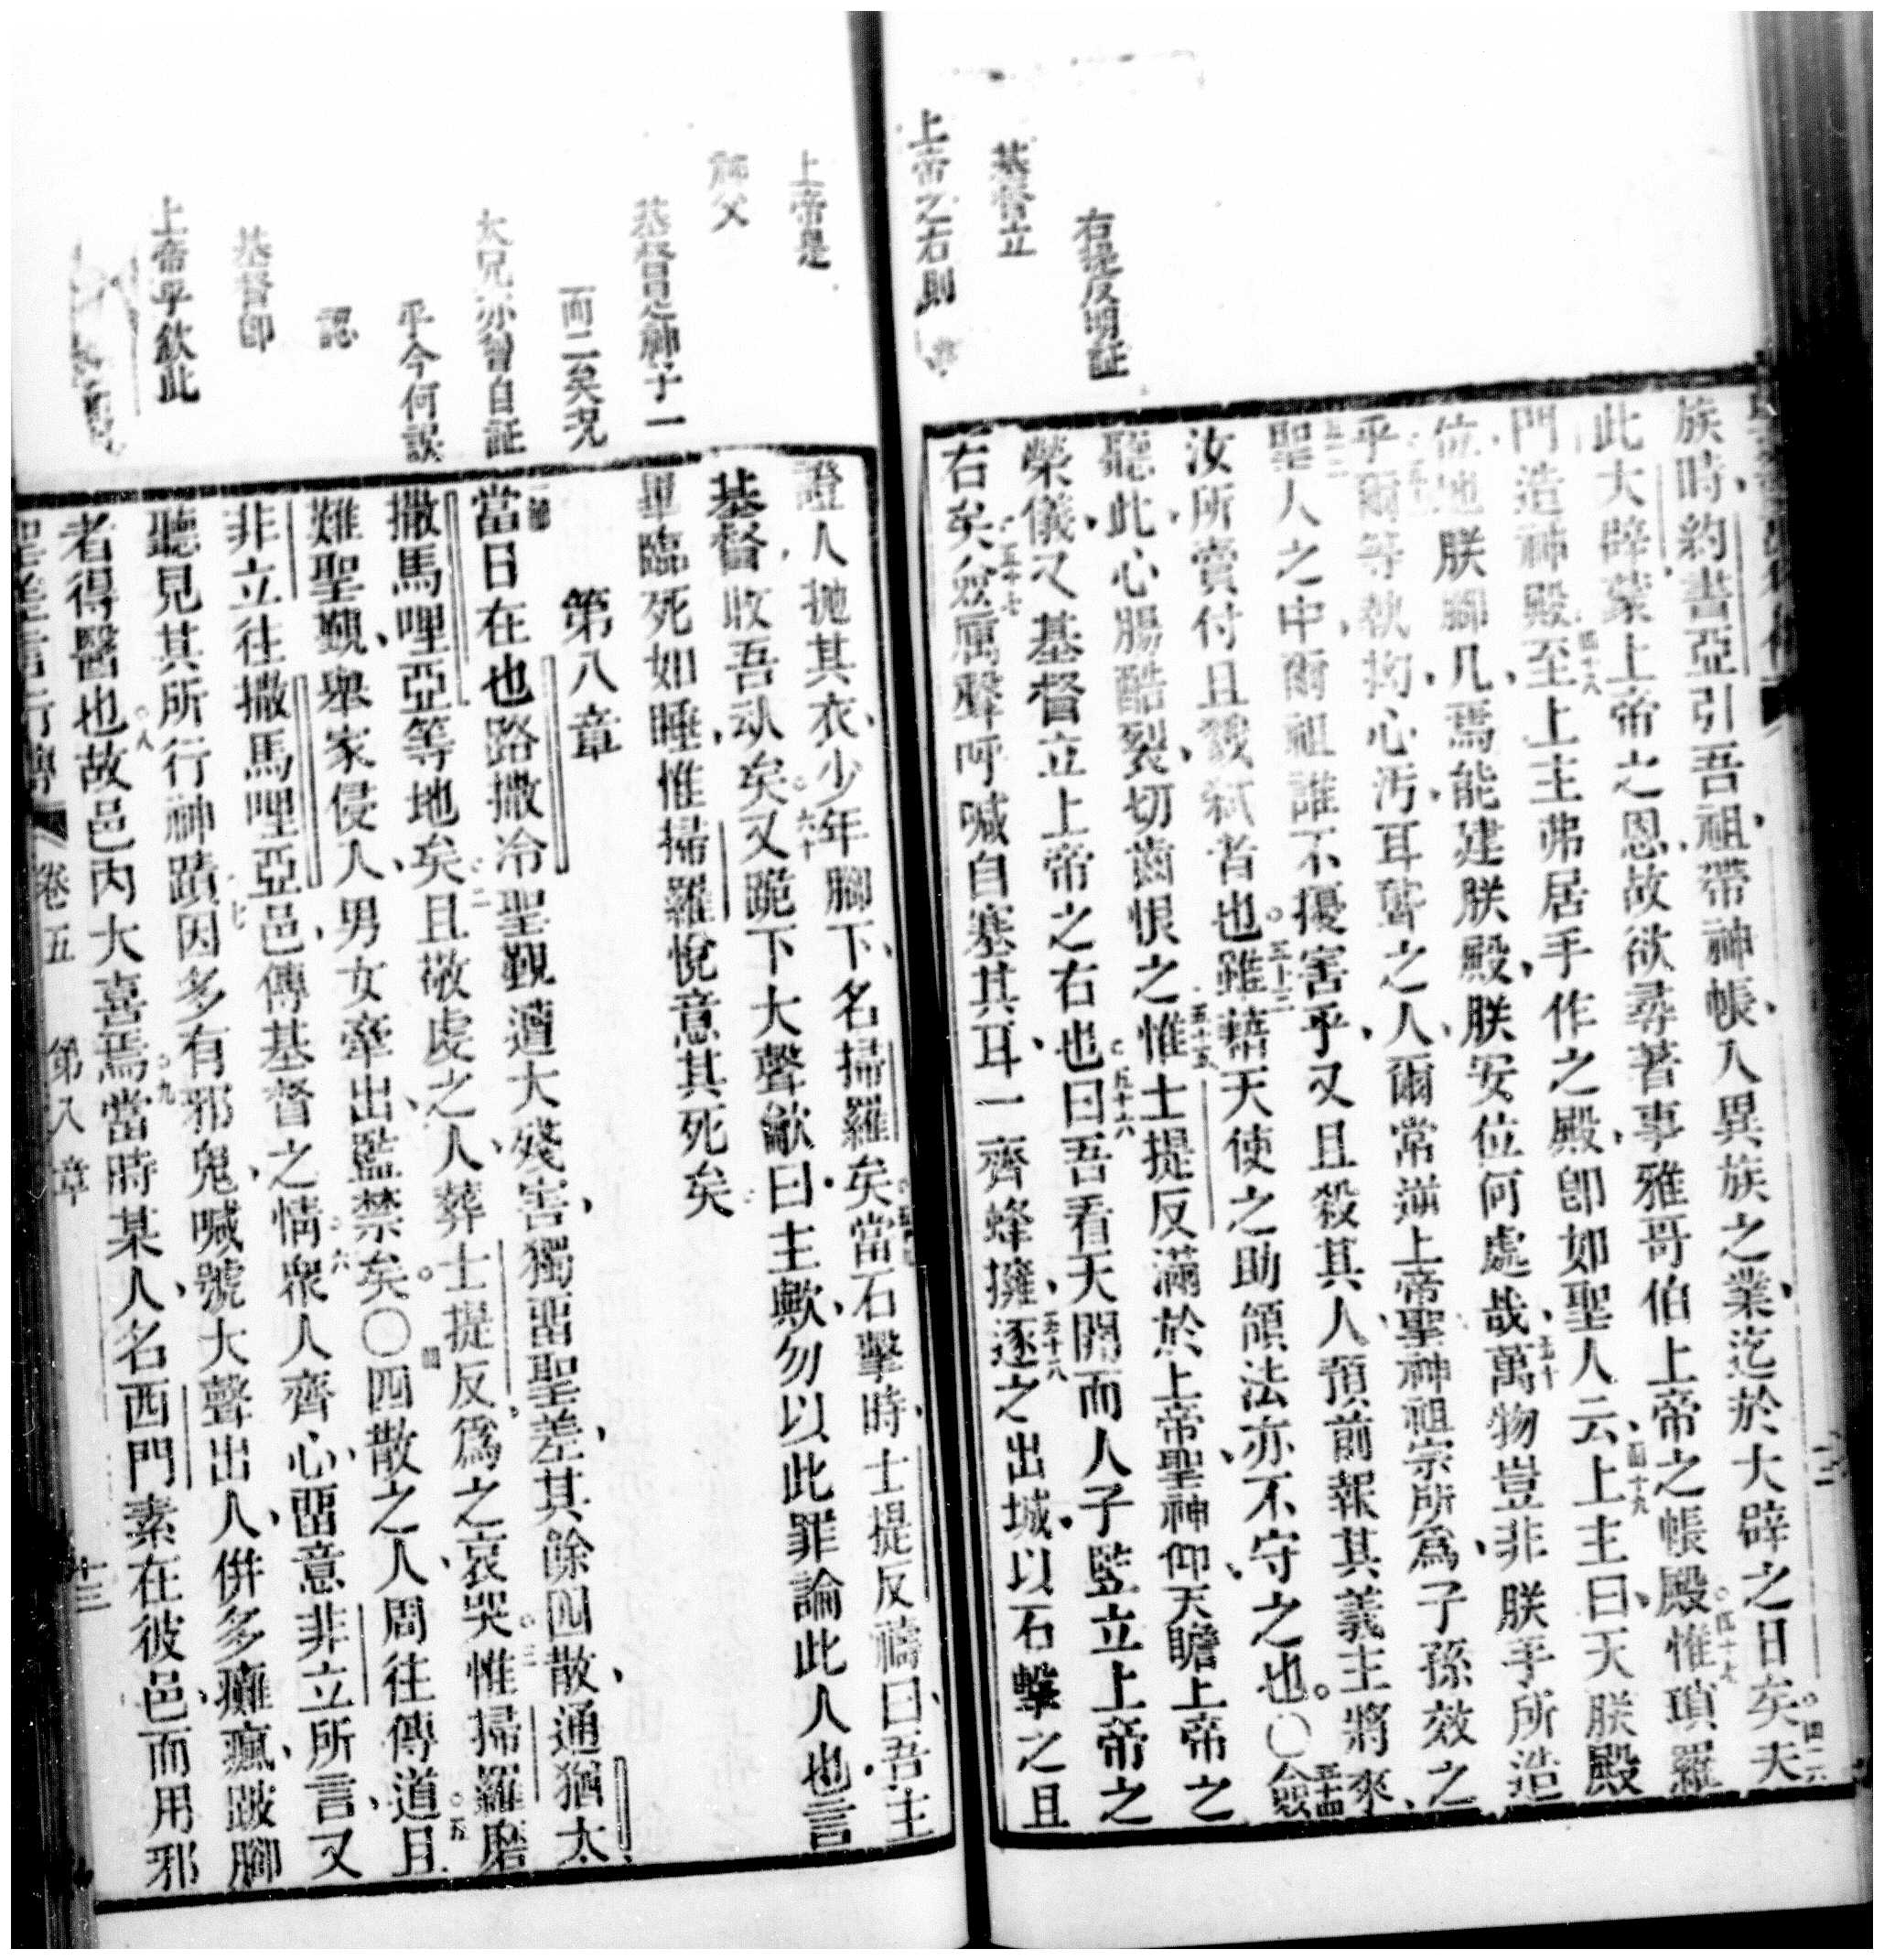 右提反明証
基督立
上帝之右則
族時約書亞引吾祖帶神帳入異族之業迄於大辟之日矣四六天
此大辟蒙上帝之恩故欲尋著事雅哥伯上帝之帳殿四十七惟瑣羅
門造神殿四十八至上主弗居手作之殿卽如聖人云四十九上主曰天朕殿
位地朕腳几焉能建朕殿朕安位何處哉五十萬物豈非朕手所造
乎爾等執拘心汚耳聾之人爾常逆上帝聖神祖宗所爲子孫效之
聖人之中爾祖誰不擾害乎又且殺其人預前報其義主將來
汝所賣付且弒者也五十三雖藉天使之助頒法亦不守之也〇五十四僉
聽此心腸酷裂切齒恨之五十五惟士提反滿於上帝聖神仰天瞻上帝之
榮儀又基督立上帝之右也五十六曰吾看天開而人子監立上帝之
右矣五十七僉厲聲呼喊自塞其耳一齊蜂擁五十八逐之出城以石擊之且
上帝是
神父
基督是神子一
而二矣況
太兄亦曾自証
乎今何誤
認
基督卽
上帝乎欽此
證人拋其衣少年腳下名掃羅矣當石擊時士提反禱曰吾主
基督收吾魂矣六十又跪下大聲籲曰主歟勿以此罪論此人也言
畢臨死如睡惟掃羅悅意其死矣
第八章
一節當日在也路撒冷聖覲遭大殘害獨留聖差其餘四散通猶太
撒馬哩亞等地矣二且敬虔之人葬士提反爲之哀哭三惟掃羅磨
難聖覲舉家侵人男女牽出監禁矣〇四四散之人周往傳道五且
非立往撒馬哩亞邑傳基督之情六衆人齊心留意非立所言又
聽見其所行神蹟七因多有邪鬼喊號大聲出人併多癱瘋跛腳
者得醫也八故邑內大喜焉九當時某人名西門素在彼邑而用邪
聖差言行傳 卷五 第八章 十三